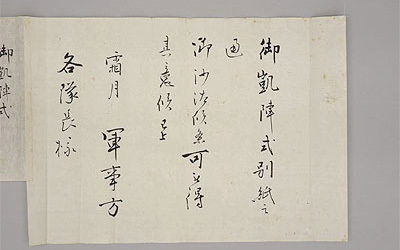 御凱陣式別紙之
通
御沙汰候条可被得
其意候事
霜月 軍事方
各隊長様
御凱陣式